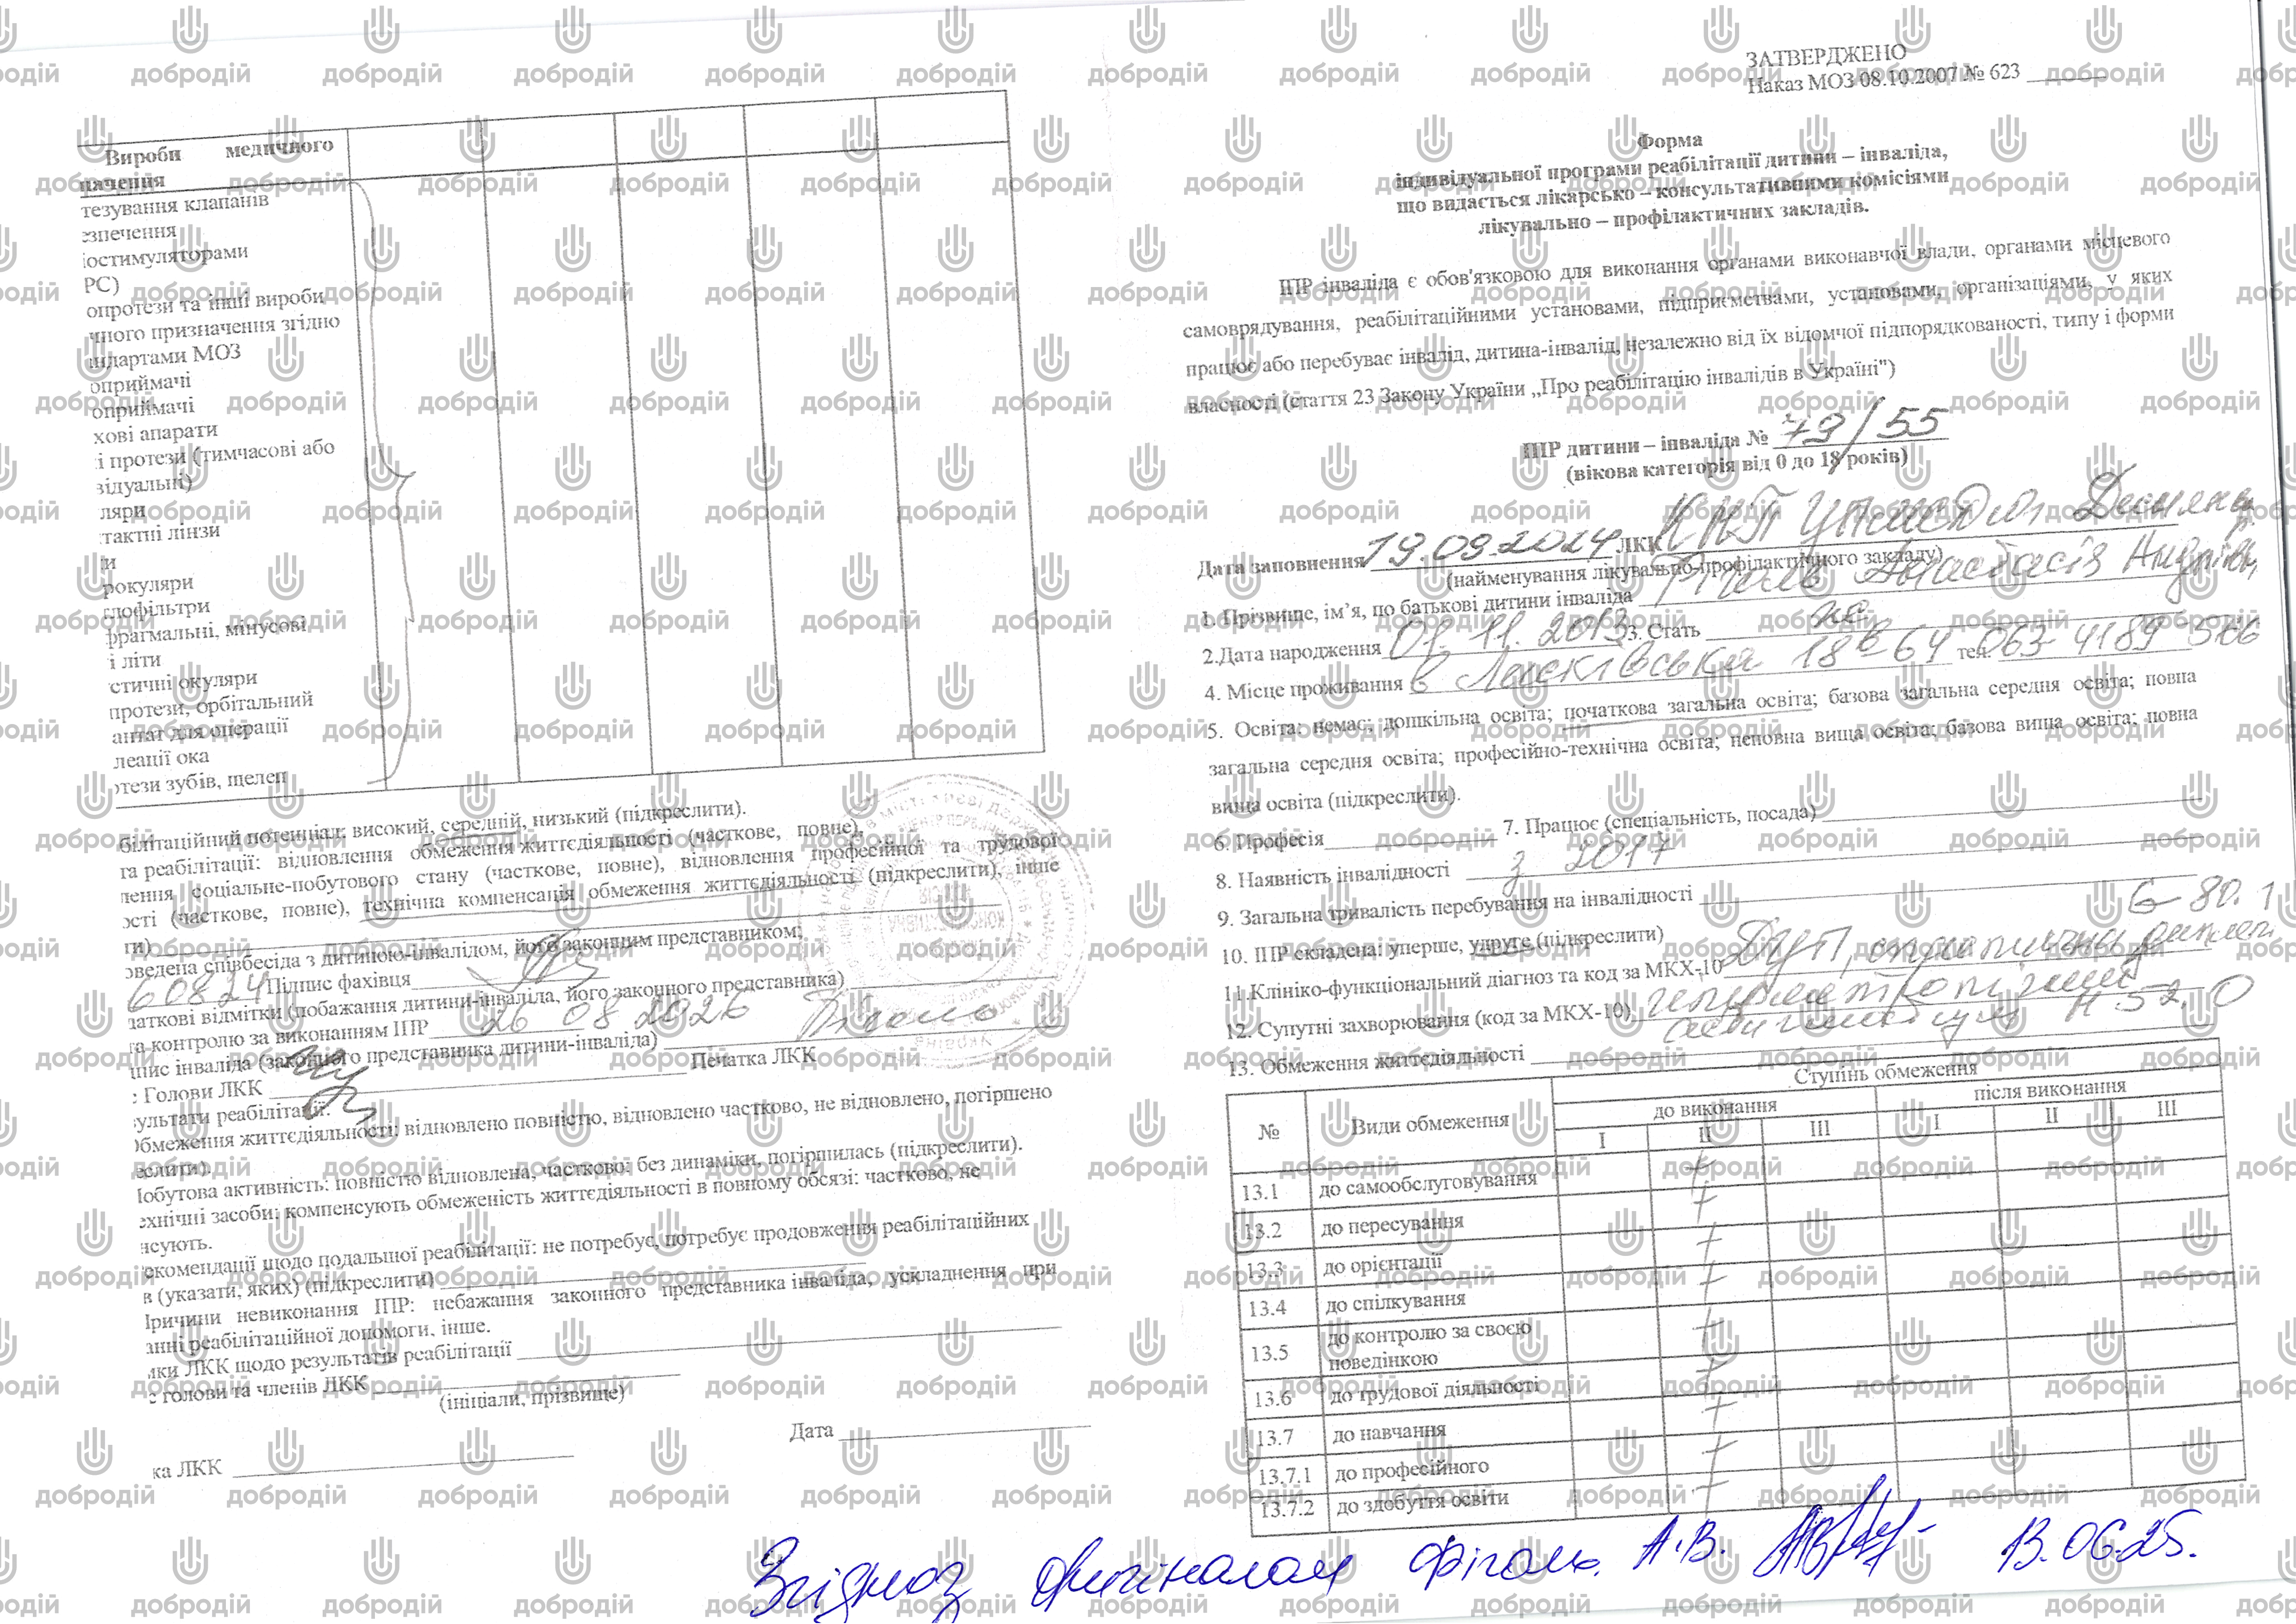 Вироби медичного
начення
тезування клапанів
езпечення
іостимуляторами
РС)
опротези та інші вироби
ичного призначення згідно
андартами МОЗ
оприймачі
оприймачі
хові апарати
і протези (тимчасові або
відуальні)
ляри
тактні лінзи
и
рокуляри
тлофільтри
фрагмальні, мінусові
і літи
стичні окуляри
протези, орбітальний
антат для операції
леації ока
отези зубів, щелеп
білітаційний потенціал: високий, середній, низький (підкреслити).
та реабілітації: відновлення обмеження життєдіяльності (часткове, повне),
лення соціальне-побутового стану (часткове, повне), відновлення професійної та трудової
ості (часткове, повне), технічна компенсація обмеження життєдіяльності (підкреслити), інше
ти)
оведена співбесіда з дитиною-інвалідом, його законним представником;
Підпис фахівця
даткові відмітки (побажання дитини-інваліда, його законного представника)
та контролю за виконанням ІПР 26 08 2026
дпис інваліда (законного представника дитини-інваліда)
: Голови ЛКК Печатка ЛКК
зультати реабілітації:
Обмеження життєдіяльності: відновлено повністю, відновлено частково, не відновлено, погіршено
еслити).
Побутова активність: повністю відновлена, частково; без динаміки, погіршилась (підкреслити).
ехнічні засоби: компенсують обмеженість життєдіяльності в повному обсязі: частково, не
нсують.
екомендації щодо подальшої реабілітації: не потребує, потребує продовження реабілітаційних
в (указати, яких) (підкреслити)
Причини невиконання ІПР: небажання законного представника інваліда, ускладнення при
анні реабілітаційної допомоги, інше.
мки ЛКК щодо результатів реабілітації
с голови та членів ЛКК
(ініціали, прізвище)
Дата
ка ЛКК
ЗАТВЕРДЖЕНО
Наказ МОЗ 08.10.2007 № 623
Форма
індивідуальної програми реабілітації дитини – інваліда,
що видається лікарсько – консультативними комісіями
лікувально – профілактичних закладів.
ІПР інваліда є обов'язковою для виконання органами виконавчої влади, органами місцевого
самоврядування, реабілітаційними установами, підприємствами, установами, організаціями, у яких
працює або перебуває інвалід, дитина-інвалід, незалежно від їх відомчої підпорядкованості, типу і форми
власності (стаття 23 Закону України „Про реабілітацію інвалідів в Україні")
ІПР дитини – інваліда № 79/55
(вікова категорія від 0 до 18 років)
Дата заповнення 19.09.2024 ЛКК КНП
(найменування лікувально-профілактичного закладу)
1. Прізвище, ім’я, по батькові дитини інваліда Фіголь Анастасія Андріївна
2.Дата народження 01.11.2013 3. Стать ж
4. Місце проживання 18в 64 тел. 063 4189 566
5. Освіта: немає; дошкільна освіта; початкова загальна освіта; базова загальна середня освіта; повна
загальна середня освіта; професійно-технічна освіта; неповна вища освіта; базова вища освіта; повна
вища освіта (підкреслити).
6. Професія 7. Працює (спеціальність, посада)
8. Наявність інвалідності з 2017
9. Загальна тривалість перебування на інвалідності
10. ІПР складена: уперше, удруге (підкреслити) G 80.1
11.Клініко-функціональний діагноз та код за МКХ-10 ДЦП, спастична диплегія
12. Супутні захворювання (код за МКХ-10) гіперметропічний
астигматизм H 52.0
13. Обмеження життєдіяльності
№ Види обмеження Ступінь обмеження
до виконання після виконання
I II III I II III
13.1 до самообслуговування +
13.2 до пересування +
13.3 до орієнтації +
13.4 до спілкування +
13.5 до контролю за своєю поведінкою +
13.6 до трудової діяльності +
13.7 до навчання +
13.7.1 до професійного +
13.7.2 до здобуття освіти +
Згідно з оригіналом Фіголь А.В. 13.06.25.
добродій